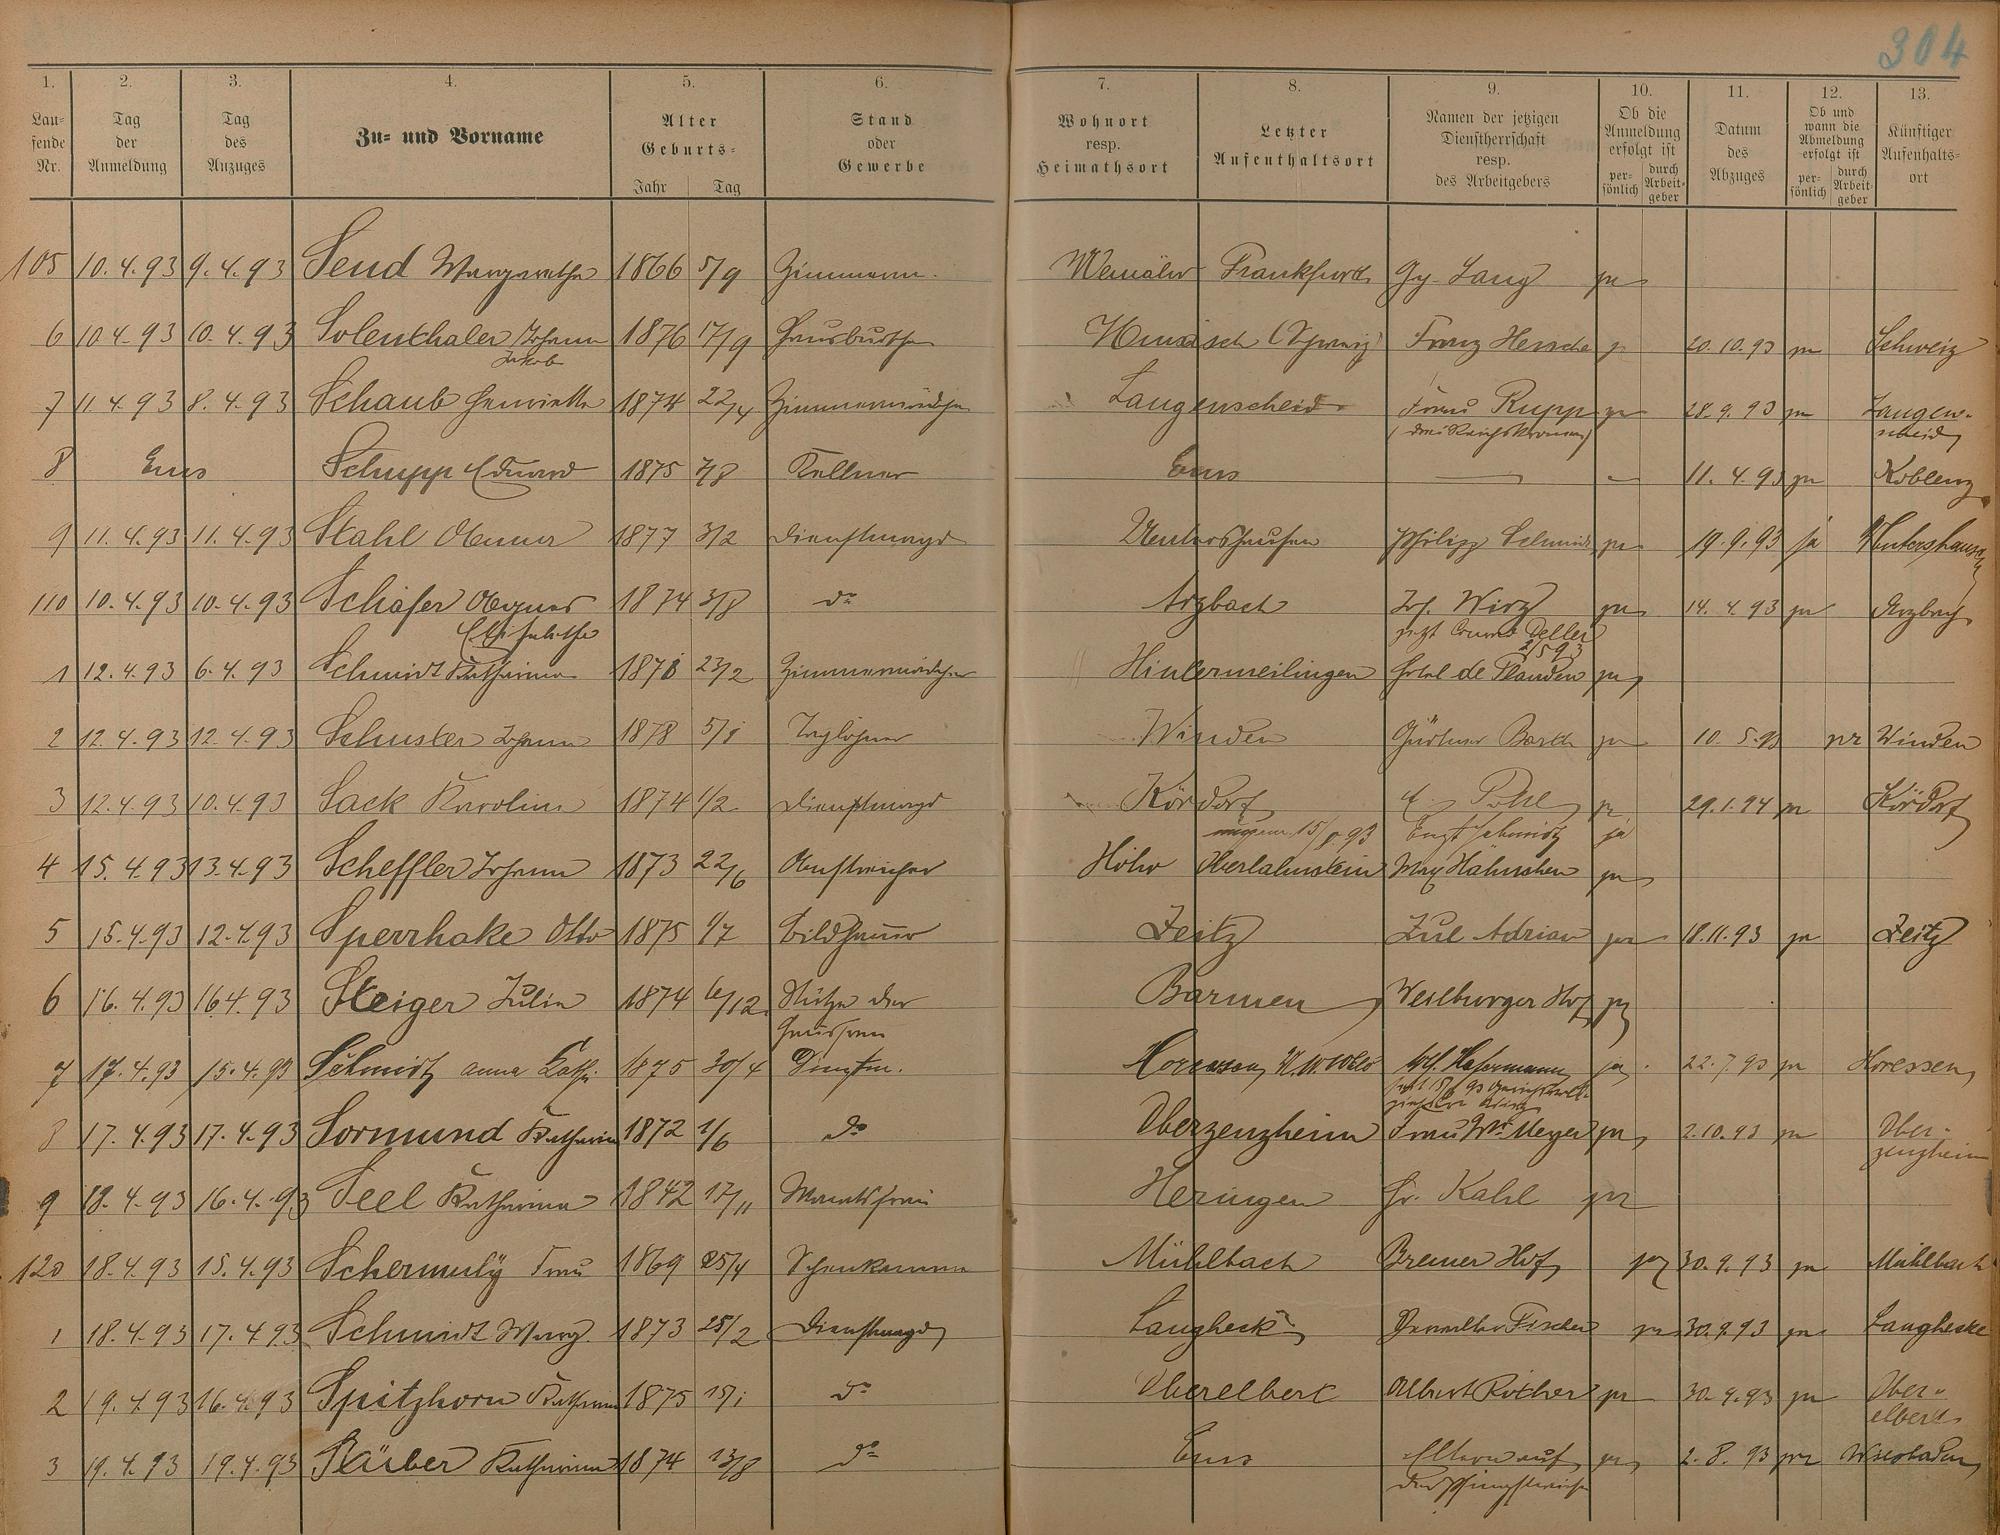 304
1. 2. 3. 4. 5. 6. 7. 8. 9. 10. 11. 12. 13.
Lau=
fende
Nr.
Tag
der
Anmeldung
Tag
des
Anzuges
Zu= und Vorname
Alter
Geburts=
Jahr Tag
Stand
oder
Gewerbe
Wohnort
resp.
Heimathsort
Letzter
Aufenthaltsort
Namen der jetzigen
Dienstherrschaft
resp.
des Arbeitgebers
Ob die
Anmeldung
erfolgt ist
per=
sönlich
durch
Arbeit=
geber
Datum
des
Abzuges
Ob und
wann die
Abmeldung
erfolgt ist
per=
sönlich
durch
Arbeit=
geber
Künftiger
Aufenthalts=
ort
105 10.4.93 9.4.93 Send Margarethe 1866 5/9 Frankfurth Gg. Lang ja
6 10.4.93 10.4.93 Solenthaler Johann 1876 17/9 Hausbursche (Schweiz) Franz ja 20.10.93 ja Schweiz
Jakob
7 11.4.93 8.4.93 Schaub Henriette 1874 22/4 Zimmermädchen Langenscheid Frau Rupp ja 28.9.93 ja Langen-
(drei Reichskronen) scheid
8 Ems Schupp Eduard 1875 7/8 Kellner Ems — — 11.4.93 ja Koblenz
9 11.4.93 11.4.93 Stahl Anna 1877 3/2 Dienstmagd Untershausen Philipp Schmidt ja 19.9.93 ja Untershausen
110 10.4.93 10.4.93 Schäfer Agnes 1874 3/8 do Arzbach Jos. Wirz ja 14.4.93 ja Arzbach
Elisabethe jetzt Deller
2/5 93
1 12.4.93 6.4.93 Schmidt Katharina 23/2 Zimmermädchen Hintermeilingen Hotel de Flandern ja
2 12.4.93 12.4.93 Schuster Johann 1878 5/1 Taglöhner Winden Gärtner Barth ja 10.5.93 ja Winden
3 12.4.93 10.4.93 Sack Karolina 1874 1/2 Dienstmagd Kördorf Pohl ja 29.1.94 ja Kördorf
93 Schmidt ja
4 15.4.93 13.4.93 Scheffler Johann 1873 22/6 Anstreicher Höhr Oberlahnstein Max Hähnchen ja
5 15.4.93 12.4.93 Sperrhake Otto 1875 1/7 Bildhauer Zeitz Jul Adrian ja 18.11.93 ja Zeitz
6 16.4.93 16.4.93 Steiger Julie 1874 6/12 Stütze der Barmen Weilburger Hof ja
Hausfrau
7 17.4.93 15.4.93 Schmidt Anna Kath. 1875 30/4 Dienstm. Hafermann ja 22.7.93 ja Horessen
8 17.4.93 17.4.93 Sormund Katharina 1872 1/6 do Oberzeuzheim Frau Ww. Meyer ja 2.10.93 ja Ober-
zeuzheim
9 18.4.93 16.4.93 Seel Katharina 1842 17/11 Monatsfrau Heringen Fr. Kahl ja
120 18.4.93 15.4.93 Schermuly Frau 1869 25/4 Schenkamme Mühlbach Bremer Hof ja 30.9.93 ja Mühlbach
1 18.4.93 17.4.93 Schmidt Marg. 1873 25/2 Dienstmagd Langheck Verwalter Fischer ja 30.9.93 ja Langhecke
2 19.4.93 16.4.93 Spitzhorn Katharina 1875 15/1 do Oberelbert Albert Rother ja 30.9.93 ja Ober-
elbert
3 19.4.93 19.4.93 Stäuber Katharina 1874 13/8 do Ems Eltern auf ja 2.8.93 ja Wiesbaden
der Pfingstwiese